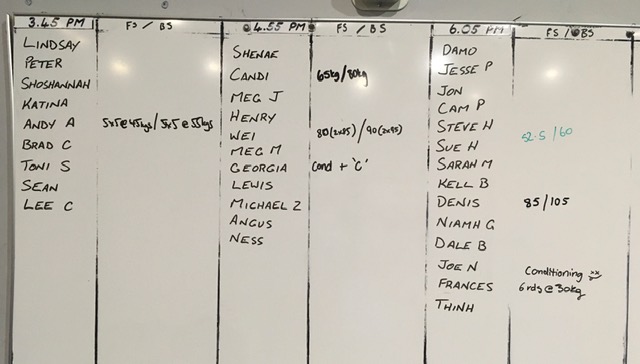 3.45 PM FS / BS
LINDSAY
PETER
SHOSHANNAH
KATINA
ANDY A 5x5@45kgs/5x5@55kgs
BRAD C
TONI S
SEAN
LEE C
4.55 PM FS / BS
SHENAE
CANDI 65kg/80kg
MEG J
HENRY
WEI 80(2x85)/90(2x95)
MEG M
GEORGIA Cond + 'C'
LEWIS
MICHAEL Z
ANGUS
NESS
6.05 PM FS / BS
DAMO
JESSE P
JON
CAM P
STEVE H 52.5/60
SUE H
SARAH M
KELL B
DENIS 85/105
NIAMH G
DALE B
JOE N Conditioning
FRANCES 6rds@30kg
THINH